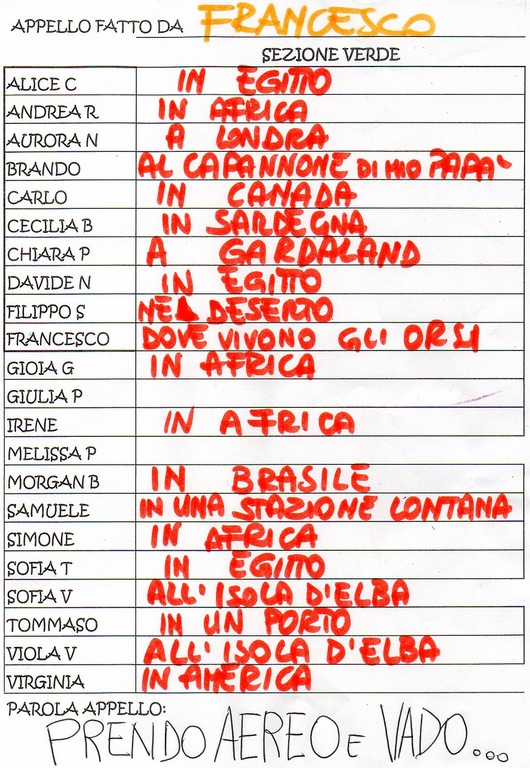 APPELLO FATTO DA FRANCESCO
SEZIONE VERDE
ALICE C IN EGITTO
ANDREA R IN AFRICA
AURORA N A LONDRA
BRANDO AL CAPANNONE DI MIO PAPA'
CARLO IN CANADA
CECILIA B IN SARDEGNA
CHIARA P A GARDALAND
DAVIDE N IN EGITTO
FILIPPO S NEL DESERTO
FRANCESCO DOVE VIVONO GLI ORSI
GIOIA G IN AFRICA
GIULIA P
IRENE IN AFRICA
MELISSA P
MORGAN B IN BRASILE
SAMUELE IN UNA STAZIONE LONTANA
SIMONE IN AFRICA
SOFIA T IN EGITTO
SOFIA V ALL'ISOLA D'ELBA
TOMMASO IN UN PORTO
VIOLA V ALL'ISOLA D'ELBA
VIRGINIA IN AMERICA
PAROLA APPELLO:
PRENDO AEREO E VADO...